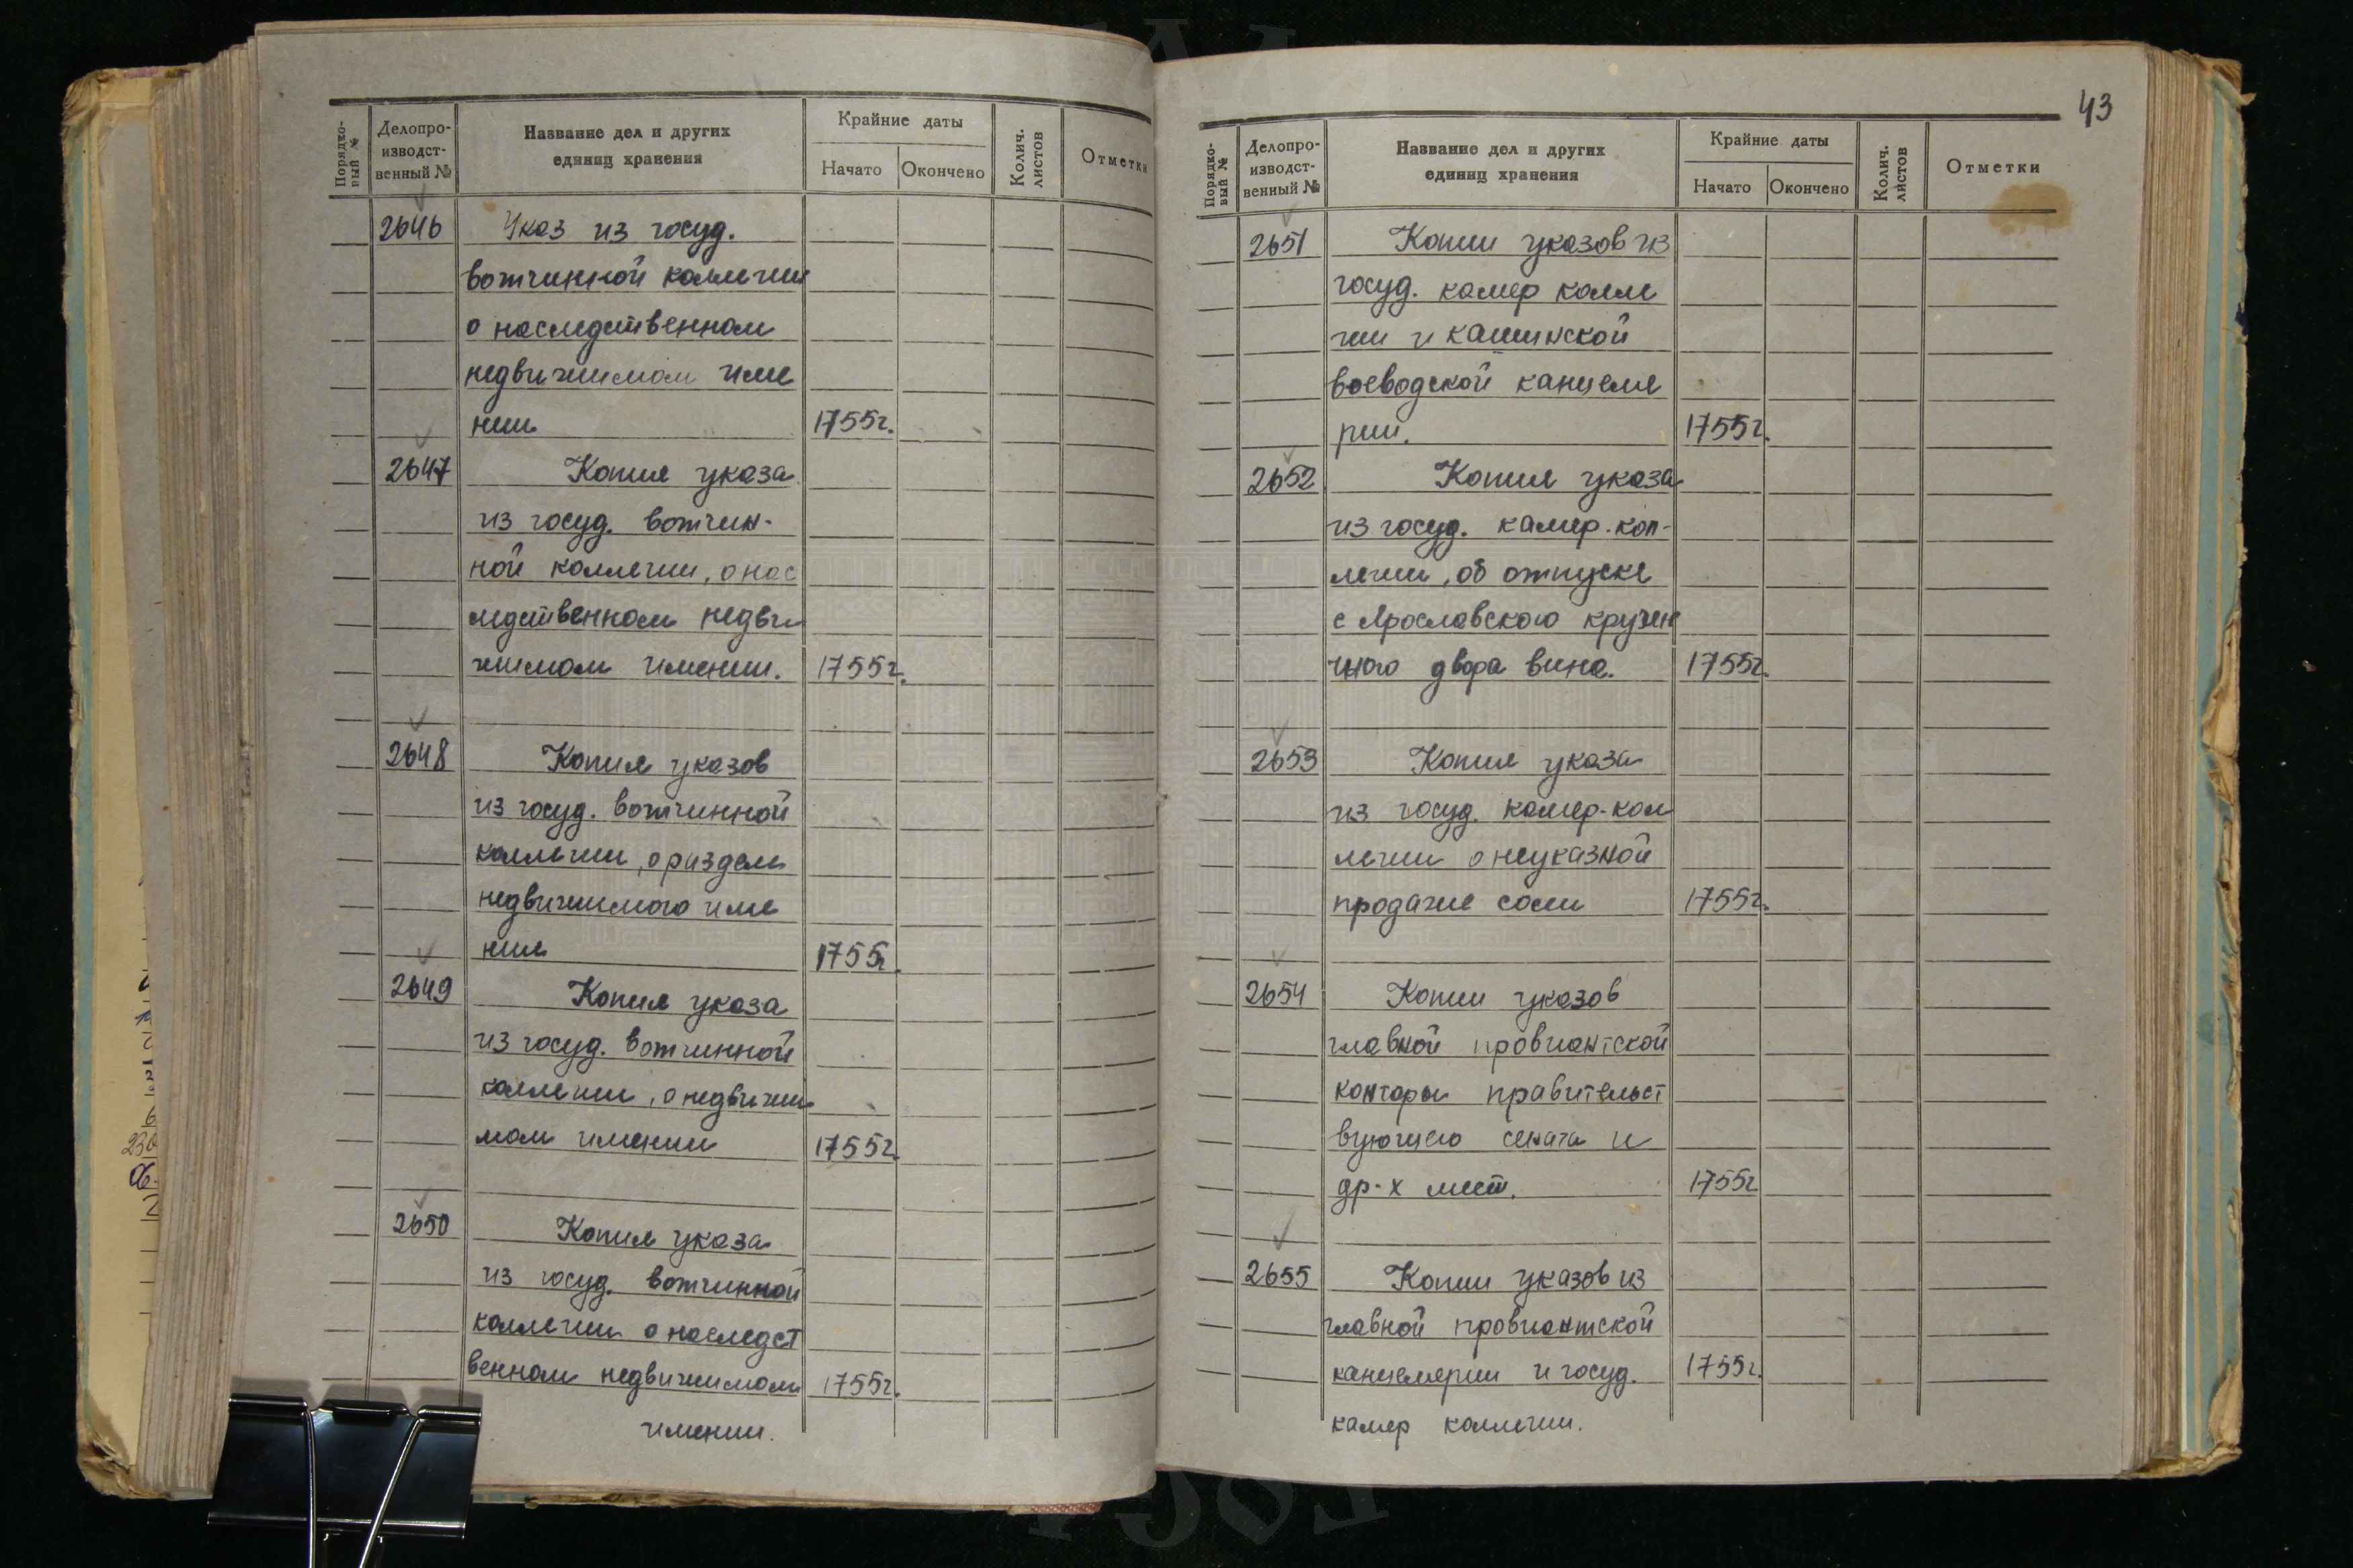 Порядко-
вый №
Делопро-
изводст-
венный №
Название дел и других
единиц хранения
Крайние даты
Начато
Окончено
Колич.
листов
Отметки
2646 Указ из госуд.
вотчинной коллегии
о наследственном
недвижимом име
нии 1755г.
2647 Копия указа
из госуд. вотчин-
ной коллегии, о нас
ледственном недви
жимом имении. 1755г.
2648 Копия указов
из госуд. вотчинной
коллегии, о разделе
недвижимого име
ния 1755г.
2649 Копия указа
из госуд. вотчинной
коллегии, о недвижи
мом имении 1755г.
2650 Копия указа
из госуд. вотчинной
коллегии о наследст
венном недвижимом 1755г.
имении.
43
Порядко-
вый №
Делопро-
изводст-
венный №
Название дел и других
единиц хранения
Крайние даты
Начато
Окончено
Колич.
листов
Отметки
2651 Копии указов из
госуд. камер колле
гии и кашинской
воеводской канцеля
рии. 1755г.
2652 Копия указа
из госуд. камер-кол-
легии, об отпуске
с Ярославского кружеч
чного двора вина. 1755г.
2653 Копия указа
из госуд. камер-кол
легии о неуказной
продаже соли 1755г.
2654 Копии указов
главной провиантской
конторы правительст
вующего сената и
др-х мест. 1755г
2655 Копии указов из
главной провиантской
канцелярии и госуд. 1755г.
камер коллегии.